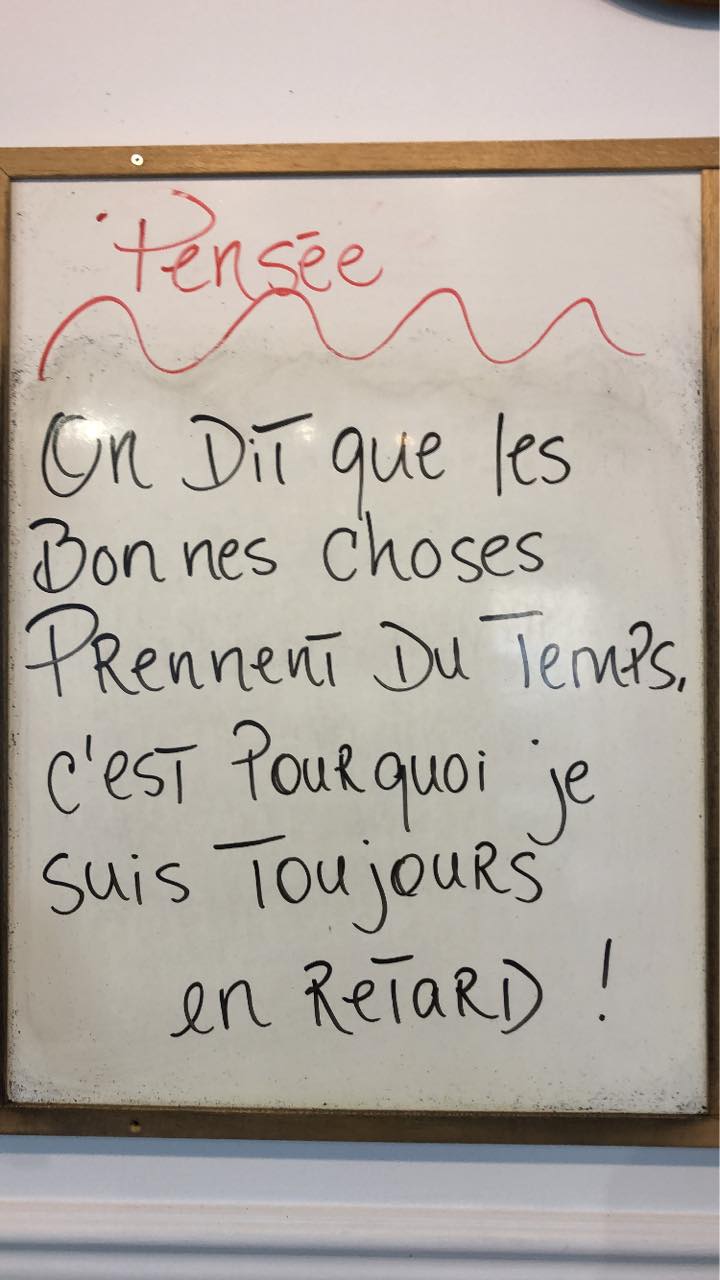 Pensée
On Dit que les
Bonnes choses
Prennent Du Temps,
c'est Pourquoi je
suis Toujours
en Retard !